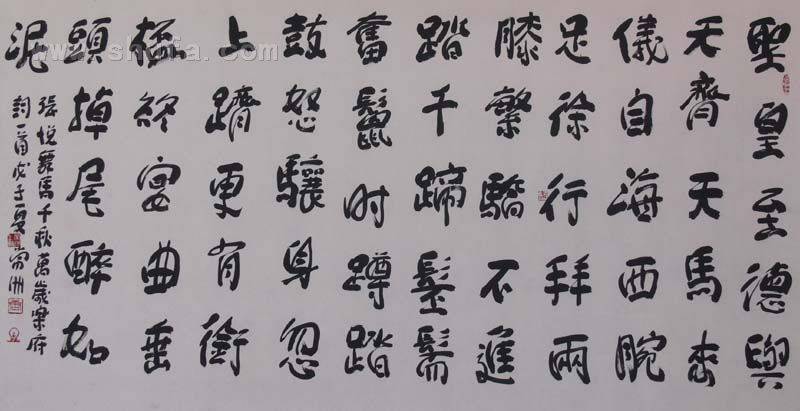 聖皇至德與
天齊天馬來
儀自海西腕
足徐行拜兩
膝繁驕不進
踏千蹄髬髵
奮鬣时蹲踏
鼓怒驤身忽
上躋更有銜
桮終宴曲垂
頭掉尾醉如
泥
張悦舞馬千秋萬歲樂府
詞一首戊子夏